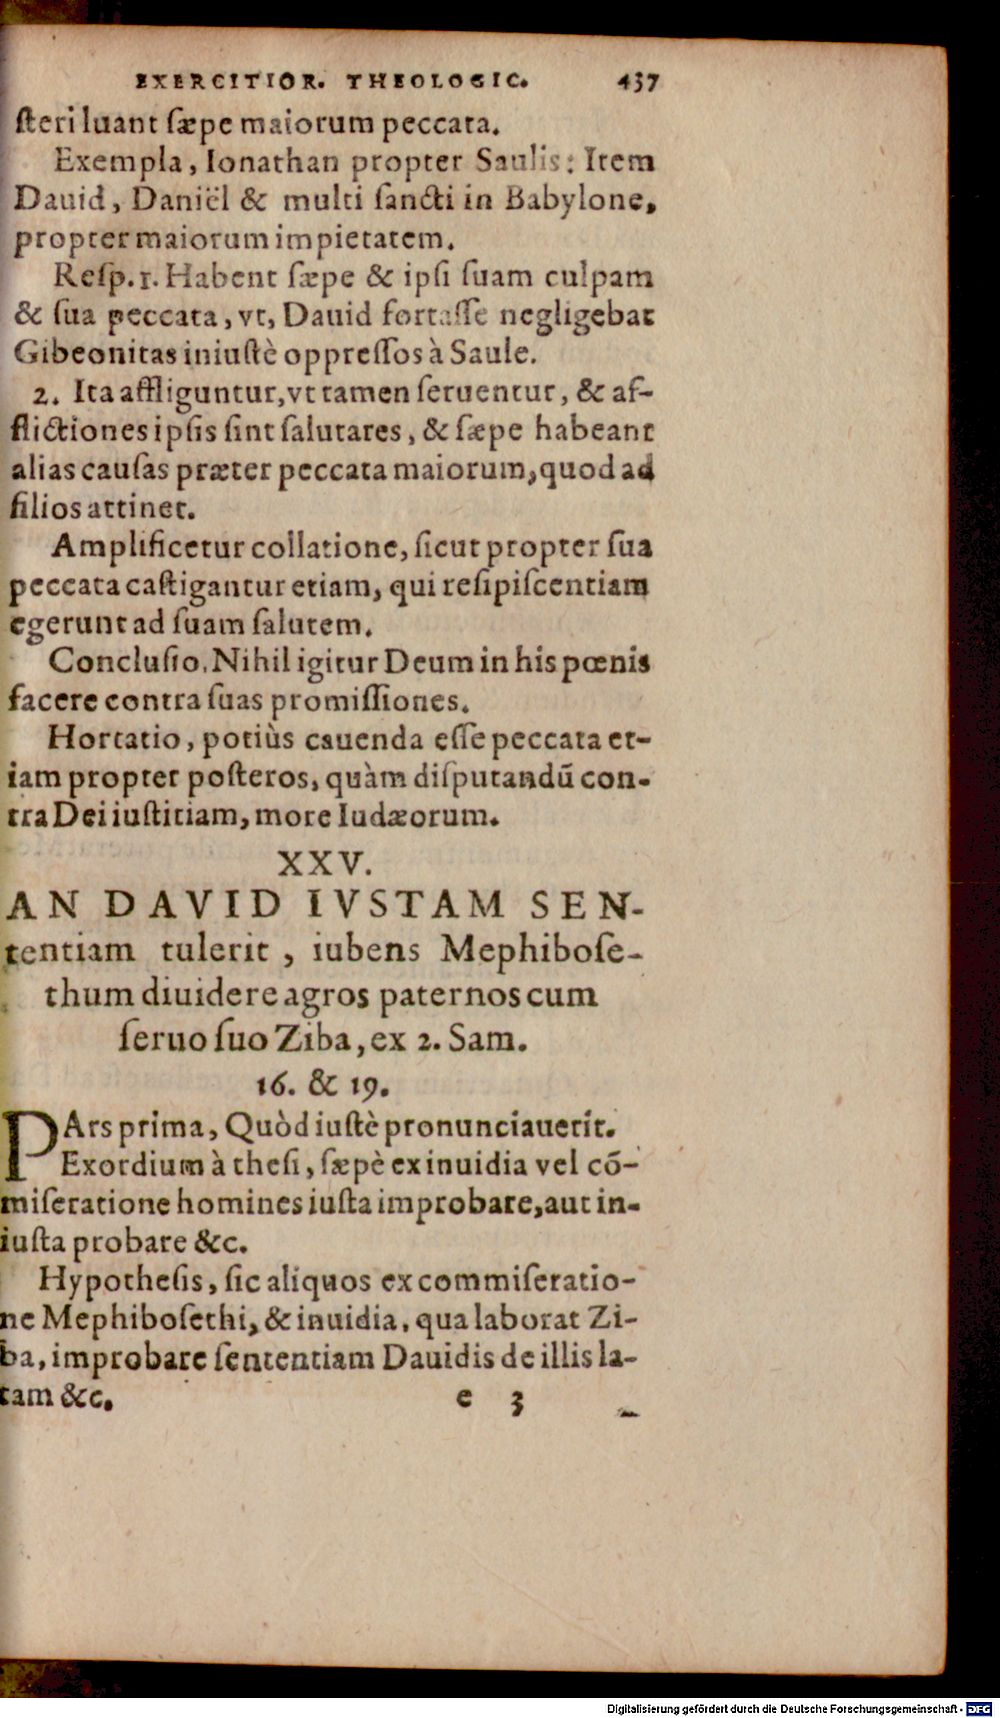 EXERCITIOR. THEOLOGIC. 437
ſteri luant ſæpe maiorum peccata.
Exempla, Ionathan propter Saulis: Item
Dauid, Daniël & multi ſancti in Babylone,
propter maiorum impietatem.
Reſp. 1. Habent ſæpe & ipſi ſuam culpam
& ſua peccata, vt, Dauid fortaſſe negligebat
Gibeonitas iniuſtè oppreſſos à Saule.
2. Ita affliguntur, vt tamen ſeruentur, & af-
flictiones ipſis ſint ſalutares, & ſæpe habeant
alias cauſas præter peccata maiorum, quod ad
filios attinet.
Amplificetur collatione, ſicut propter ſua
peccata caſtigantur etiam, qui reſipiſcentiam
egerunt ad ſuam ſalutem.
Concluſio. Nihil igitur Deum in his pœnis
facere contra ſuas promiſſiones.
Hortatio, potiùs cauenda eſſe peccata et-
iam propter poſteros, quàm diſputandũ con-
tra Dei iuſtitiam, more Iudæorum.
XXV.
AN DAVID IVSTAM SEN-
tentiam tulerit, iubens Mephiboſe-
thum diuidere agros paternos cum
ſeruo ſuo Ziba, ex 2. Sam.
16. & 19.
PArs prima, Quòd iuſtè pronunciauerit.
Exordium à theſi, ſæpè ex inuidia vel cõ-
miſeratione homines iuſta improbare, aut in-
iuſta probare &c.
Hypotheſis, ſic aliquos ex commiſeratio-
ne Mephiboſethi, & inuidia, qua laborat Zi-
ba, improbare ſententiam Dauidis de illis la-
tam &c. e 3
Digitalisierung gefördert durch die Deutsche Forschungsgemeinschaft - DFG